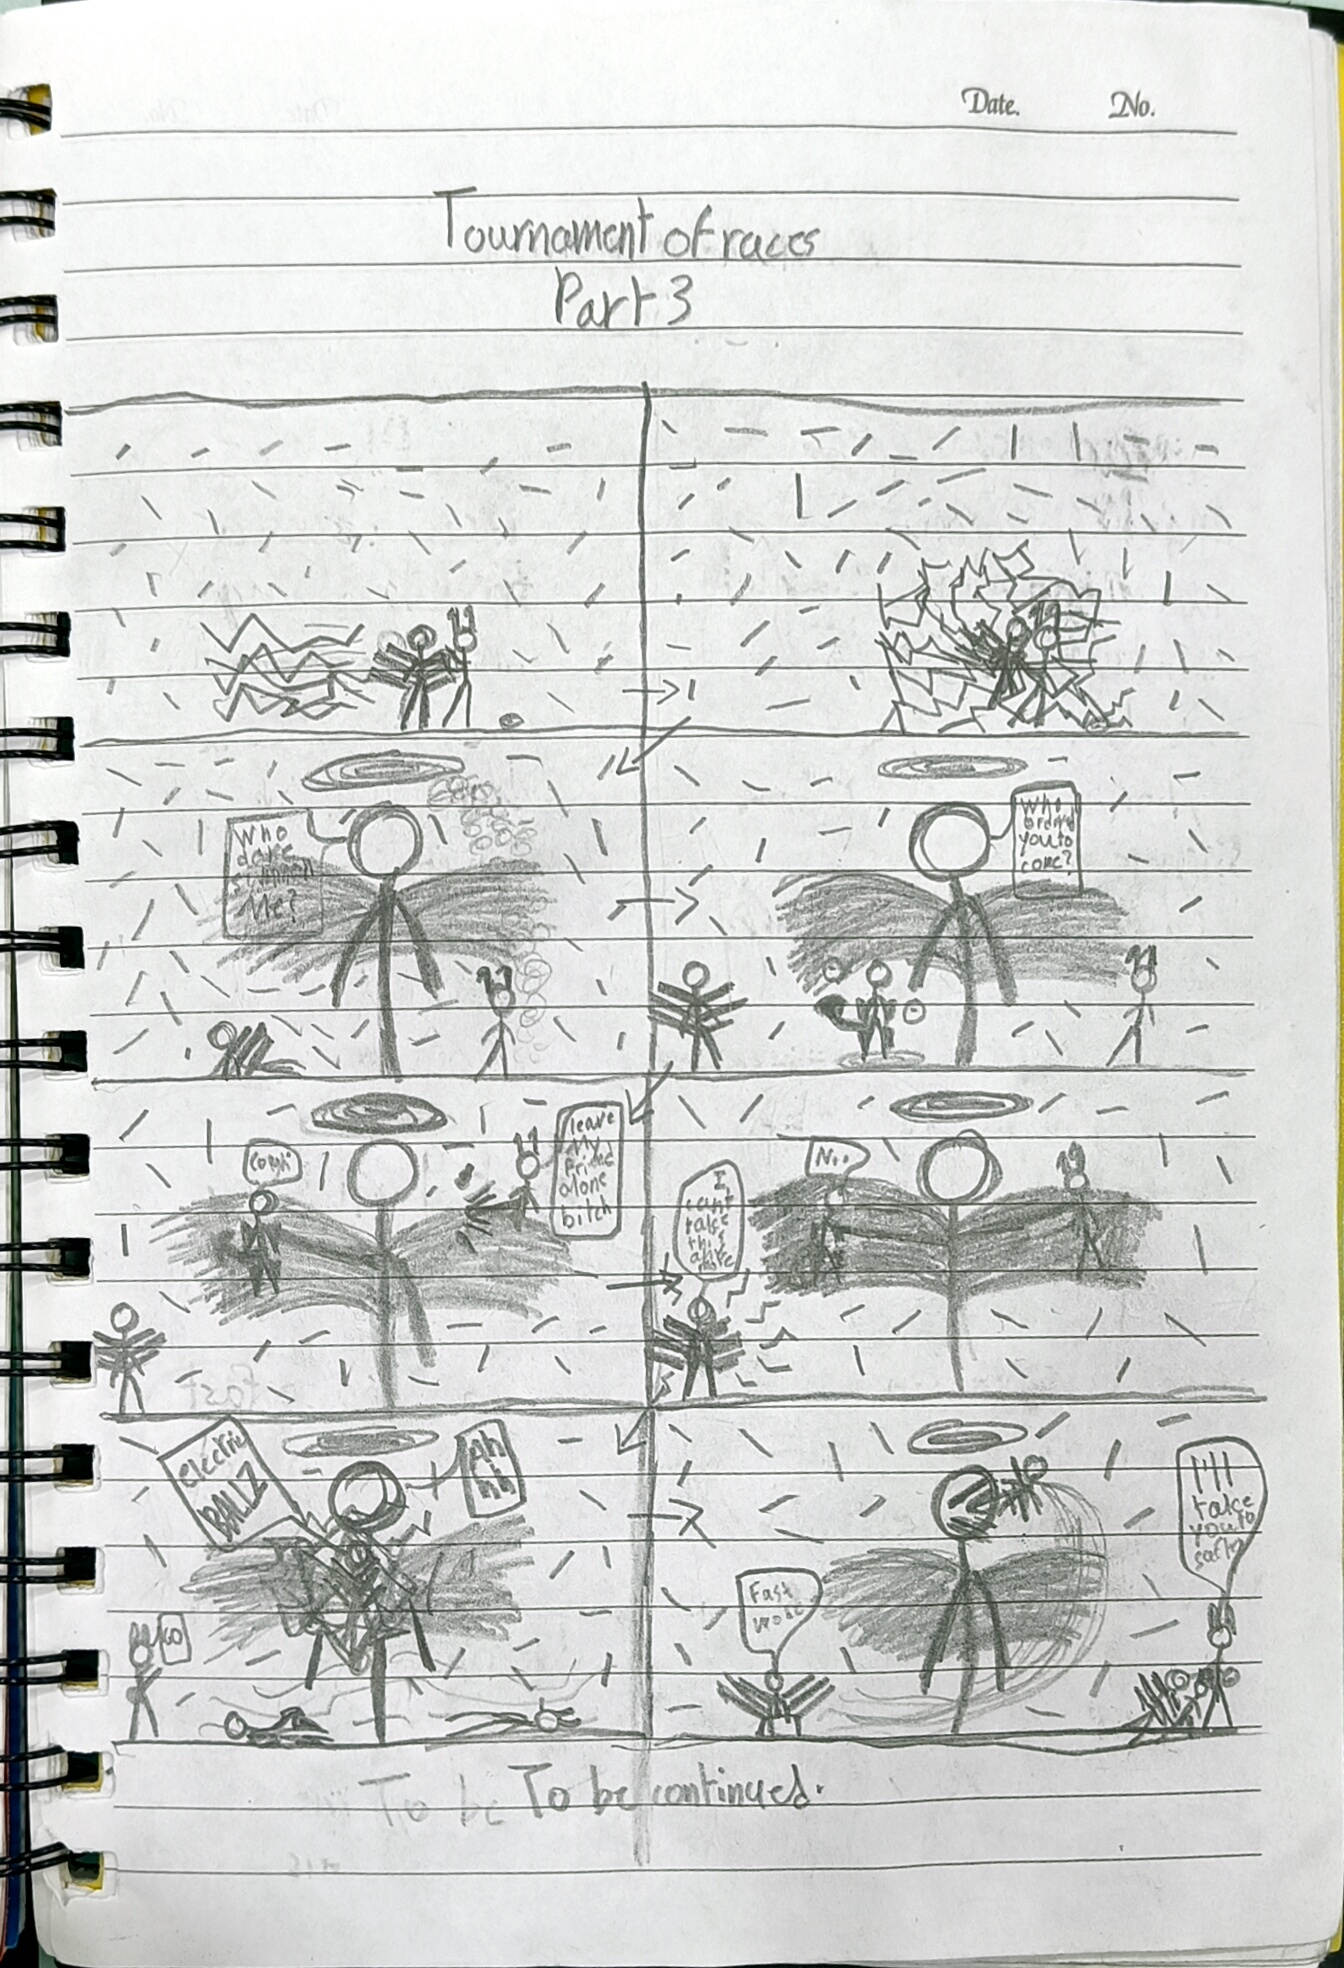 Date. No.
Tournament of races
Part 3
Who
dare
summon
Me?
Who
orderd
you to
come?
cough
leave
My
friend
alone
bitch
I
can't
take
this
N..
electric
BALLZ
Ah
hh
Fast
I'll
take
you to
To be To be continued.